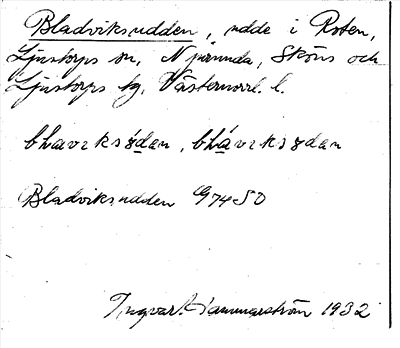 Bladviksudden, udde i Roten,
Ljustorps sn, Njurunda, Sköns och
Ljustorps tg, Västernorrl. l.
bLavɩksɣdan, bLávɩksɣdan
Bladviksudden G74SO
Ingvar Hammarström 1932